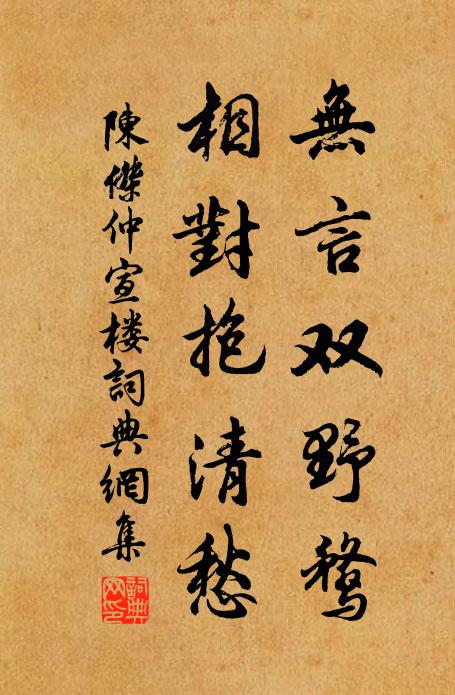 無言双野鶩
相對抱清愁
陳傑仲宣楼詞典網集
詞典网印